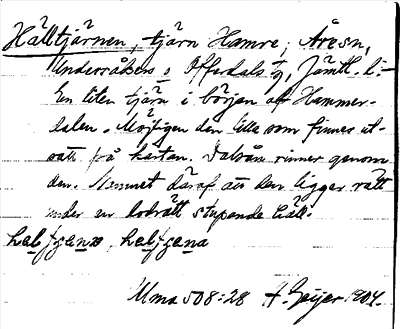 Hälltjärnen, tjärn Hamre; Åresn,
Undersåkers o Offerdals tg, Jämtl. l:-
En liten tjärn i början af Hammer-
dalen. Möjligen den lilla som finnes ut-
satt på kartan. Dalsån rinner genom
den. Namnet däraf att den ligger rätt
under en lodrätt stupande häll.
Uma 508:28 A. Geijer 1904.